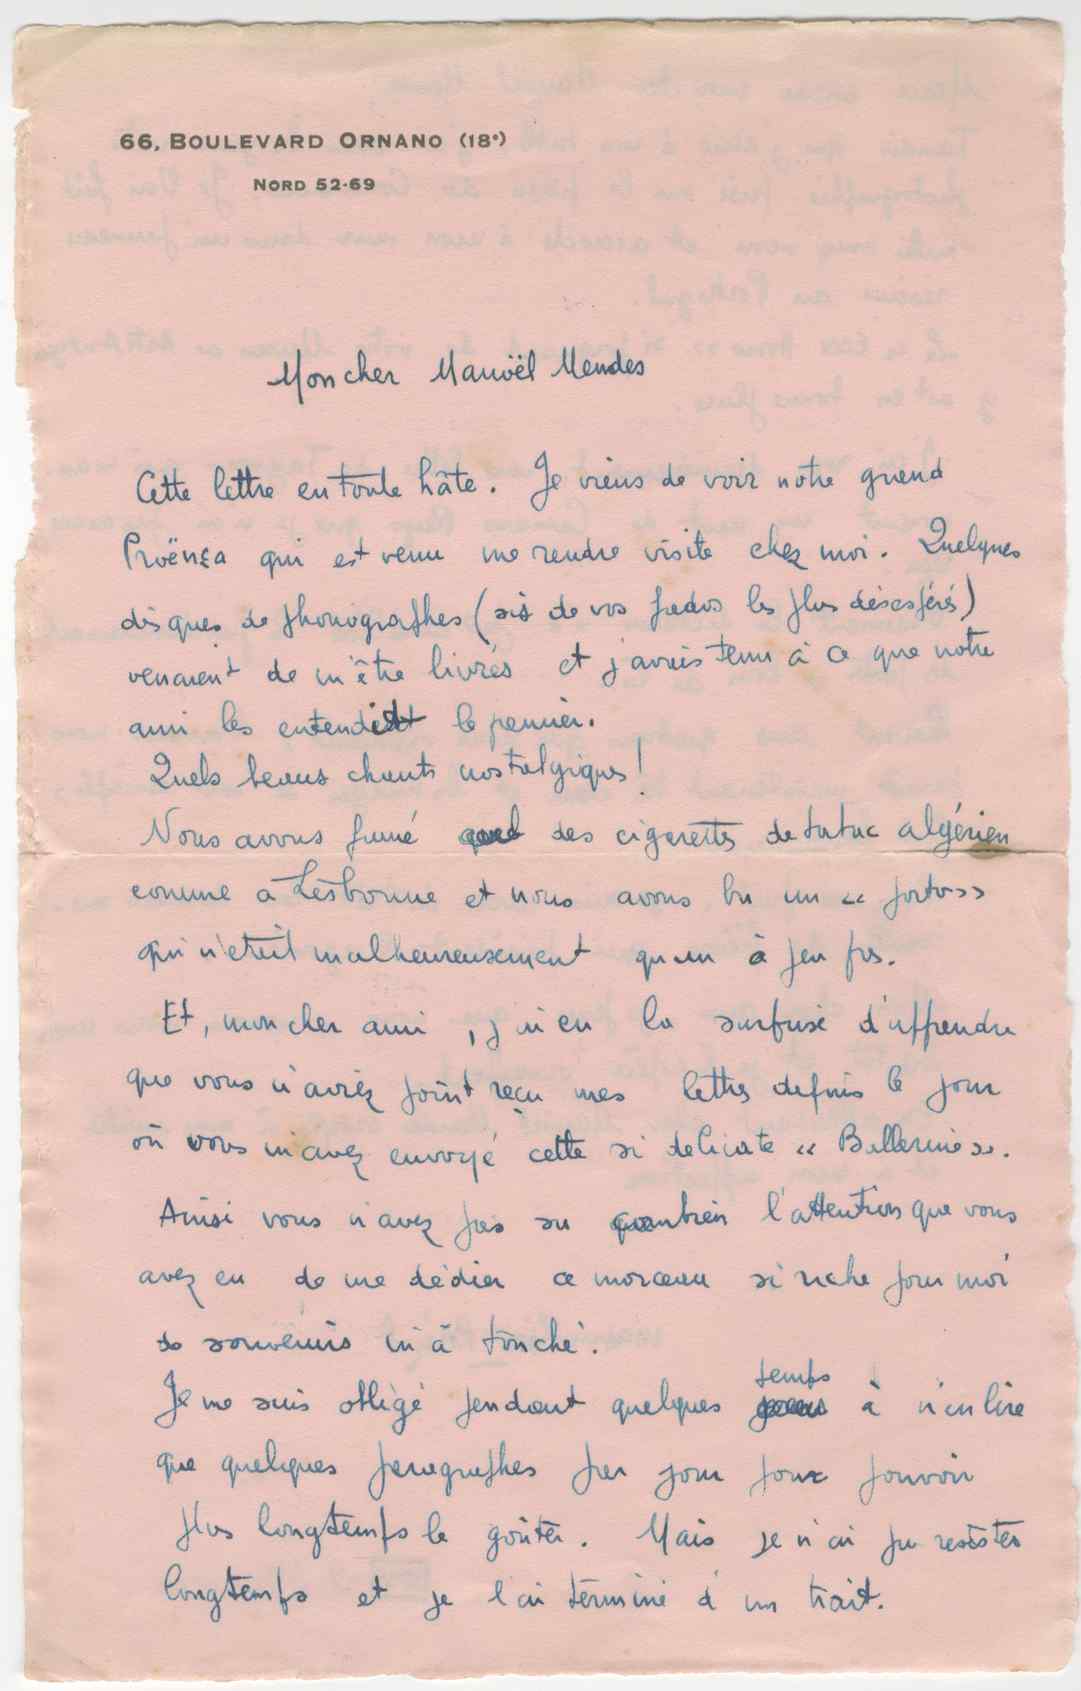 66, BOULEVARD ORNANO (18e)
NORD 52-69
Mon cher Manoël Mendes
Cette lettre en toute hâte. Je viens de voir notre grand
Proënça qui est venu me rendre visite chez moi. Quelques
disques de phonographes (six de vos fados les plus désespérés)
venaient de m'être livrés et j'avais tenu à ce que notre
ami les entendit le premier.
Quels beaux chants nostalgiques!
Nous avons fumé des cigarettes de tabac algérien
comme à Lisbonne et nous avons bu un « porto »
qui n'était malheureusement qu'un à peu près.
Et, mon cher ami, j'ai eu la surprise d'apprendre
que vous n'aviez point reçu mes lettres depuis le jour
où vous m'avez envoyé cette si délicate « Ballerine ».
Ainsi vous n'avez pas su combien l'attention que vous
avez eu de me dédier ce morceau si riche pour moi
de souvenirs m'a touché.
Je me suis obligé pendant quelques temps à n'en lire
que quelques paragraphes par jour pour pouvoir
plus longtemps le goûter. Mais je n'ai pu résister
longtemps et je l'ai terminé d'un trait.